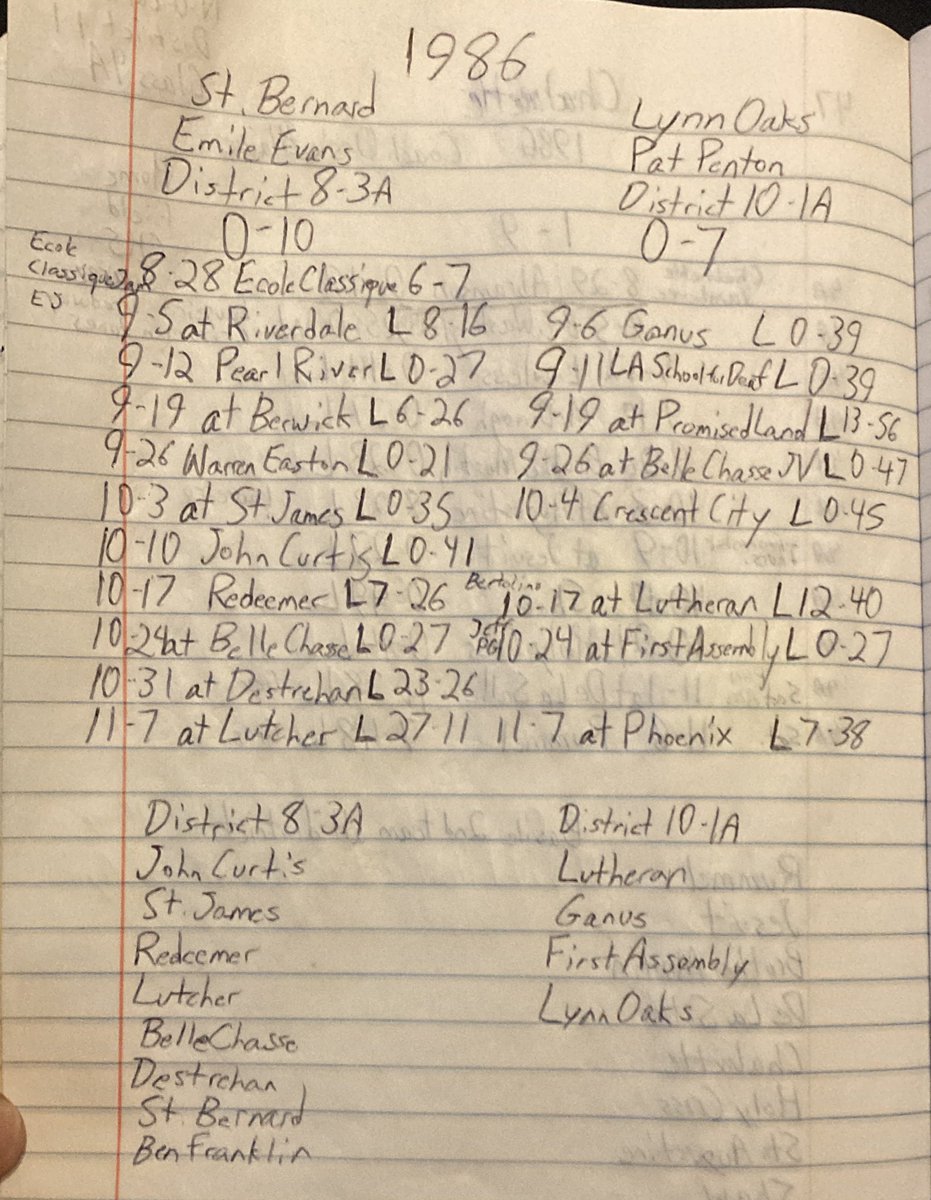 1986
St. Bernard Lynn Oaks
Emile Evans Pat Penton
District 8-3A District 10-1A
0-10 0-7
Ecole
Classique Jam 8-28 Ecole Classique 6-7
9-5 at Riverdale L 8-16 9-6 Ganus L 0-39
9-12 Pearl River L 0-27 9-11 LA School for Deaf L 0-39
9-19 at Berwick L 6-26 9-19 at Promised Land L 13-56
9-26 Warren Easton L 0-21 9-26 at Belle Chasse JV L 0-47
10-3 at St. James L 0-35 10-4 Crescent City L 0-45
10-10 John Curtis L 0-41
10-17 Redeemer L 7-26 Bertolino 10-17 at Lutheran L 12-40
10-24 at Belle Chasse L 0-27 Jeff PG 10-24 at First Assembly L 0-27
10-31 at Destrehan L 23-26
11-7 at Lutcher L 27-11 11-7 at Phoenix L 7-38
District 8 3A District 10-1A
John Curtis Lutheran
St. James Ganus
Redeemer First Assembly
Lutcher Lynn Oaks
Belle Chasse
Destrehan
St. Bernard
Ben Franklin